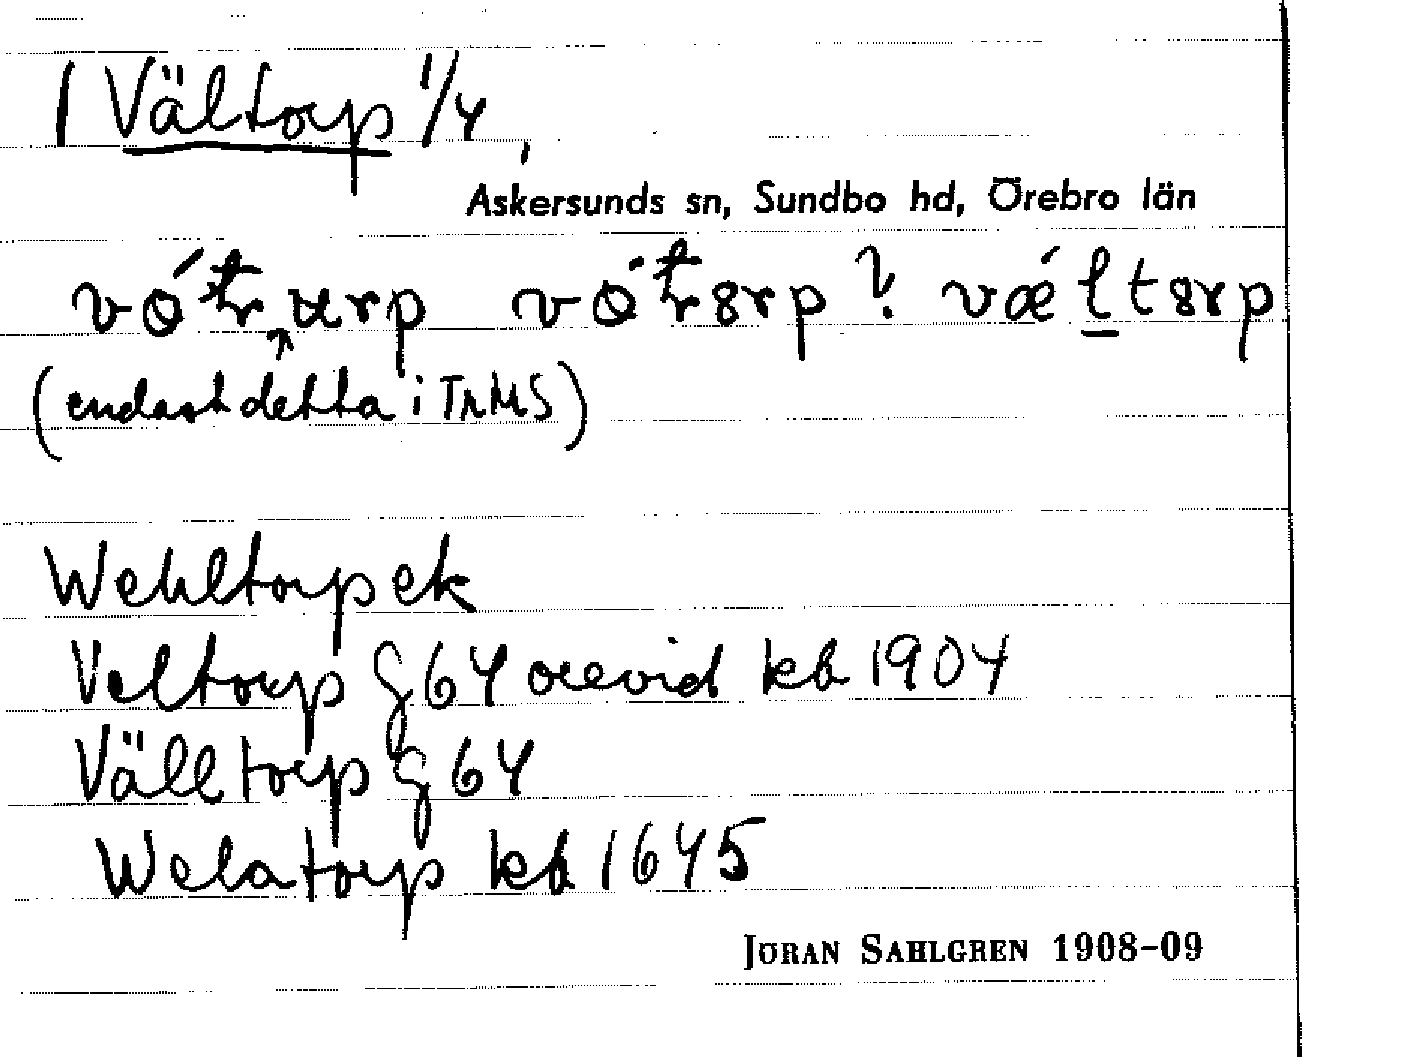 1 Vältorp 1/4,
Askersunds sn, Sundbo hd, Örebro län
? væ´ltsrp
(endast detta i TrMS)
Wehltorp ek
Veltorp G 64 orevid kb 1904
Välltorp G 64
Welatorp kb 1645
JÖRAN SAHLGREN 1908-09